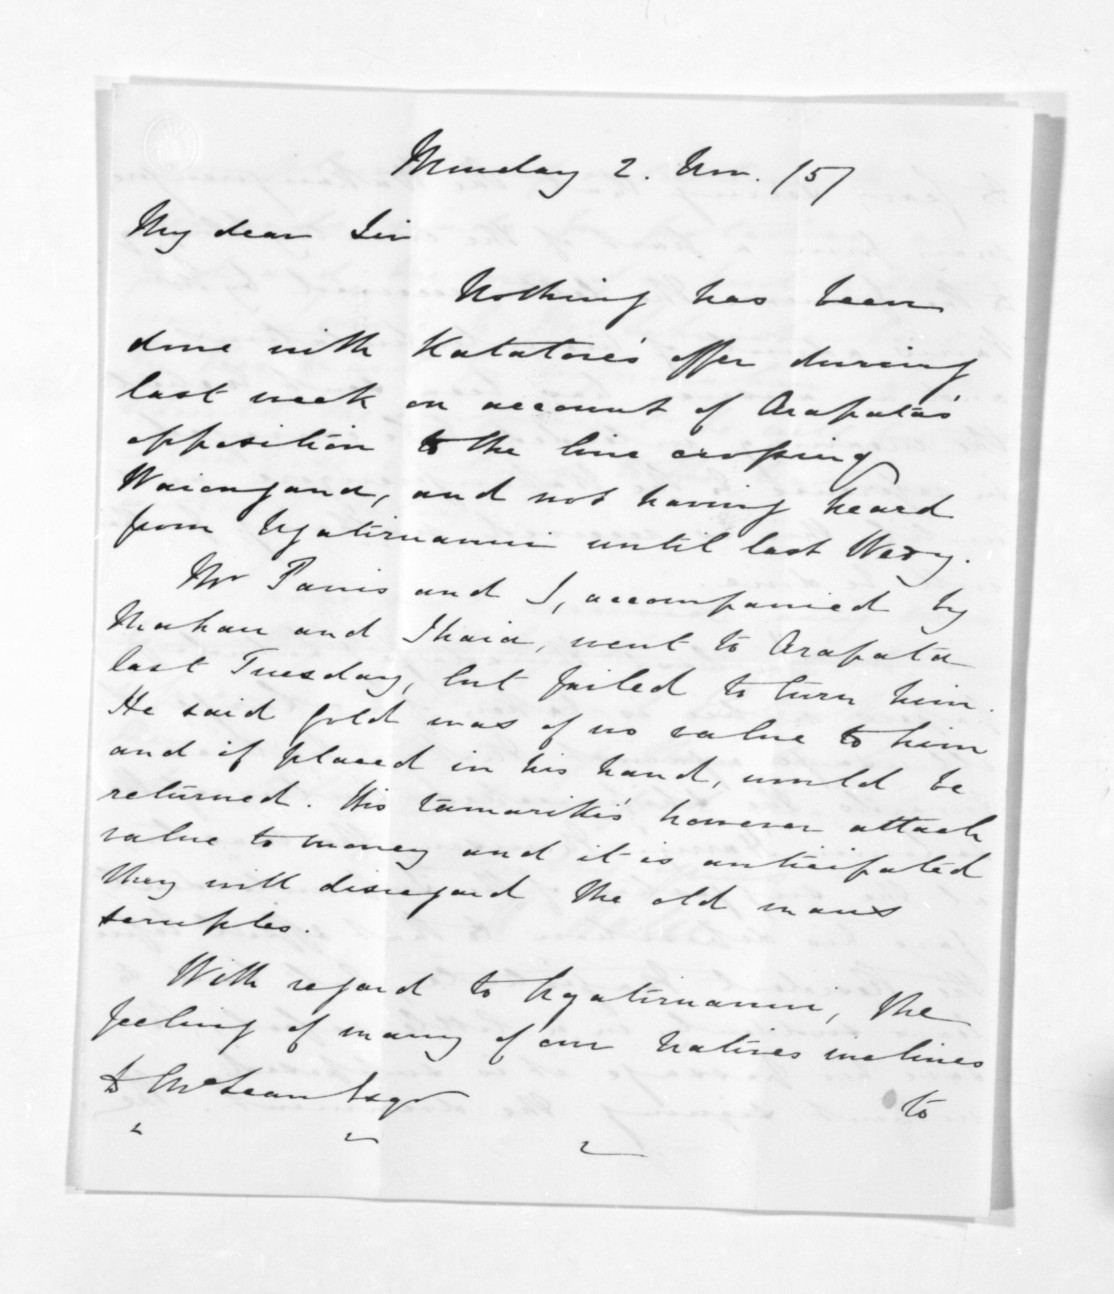 Monday 2. Nov. /57
My dear Sir
Nothing has been
done with Katatore's offer during
last week on account of Arapata's
opposition to the line crossing
Waiongana, and not having heard
from Ngatiruanui until last Wedy.
Mr Parris and I, accompanied by
Mahau and Ihaia, went to Arapata
last Tuesday, but failed to turn him.
He said gold was of no value to him
and if placed in his hand, would be
returned. His tamariki's however attach
value to money and it is anticipated
they will disregard the old mans
scruples.
With regard to Ngatiruanui, the
feeling of many of our Natives inclines
D McLean Esqr
to